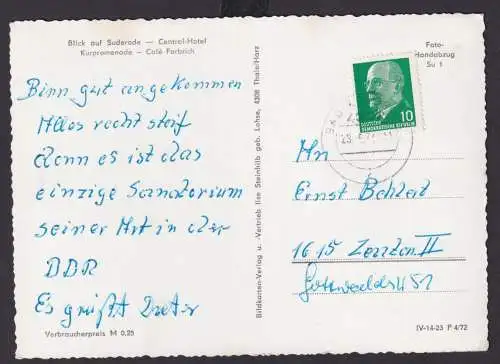 Blick auf Suderode — Central-Hotel
Kurpromenade — Café Forbrich
Binn gut angekommen
Alles recht steif
denn es ist das
einzige Sanatorium
seiner Art in der
DDR
Es grüßt Dieter
Verbraucherpreis M 0,25
Bildkarten-Verlag u. -Vertrieb Ilse Steinhilb geb. Lohse, 4308 Thale/Harz
Foto-
Handabzug
Su 1
10
DEUTSCHE
DEMOKRATISCHE REPUBLIK
BAD
An
Ernst
1615 Zeuthen II
IV-14-25 P 4/72